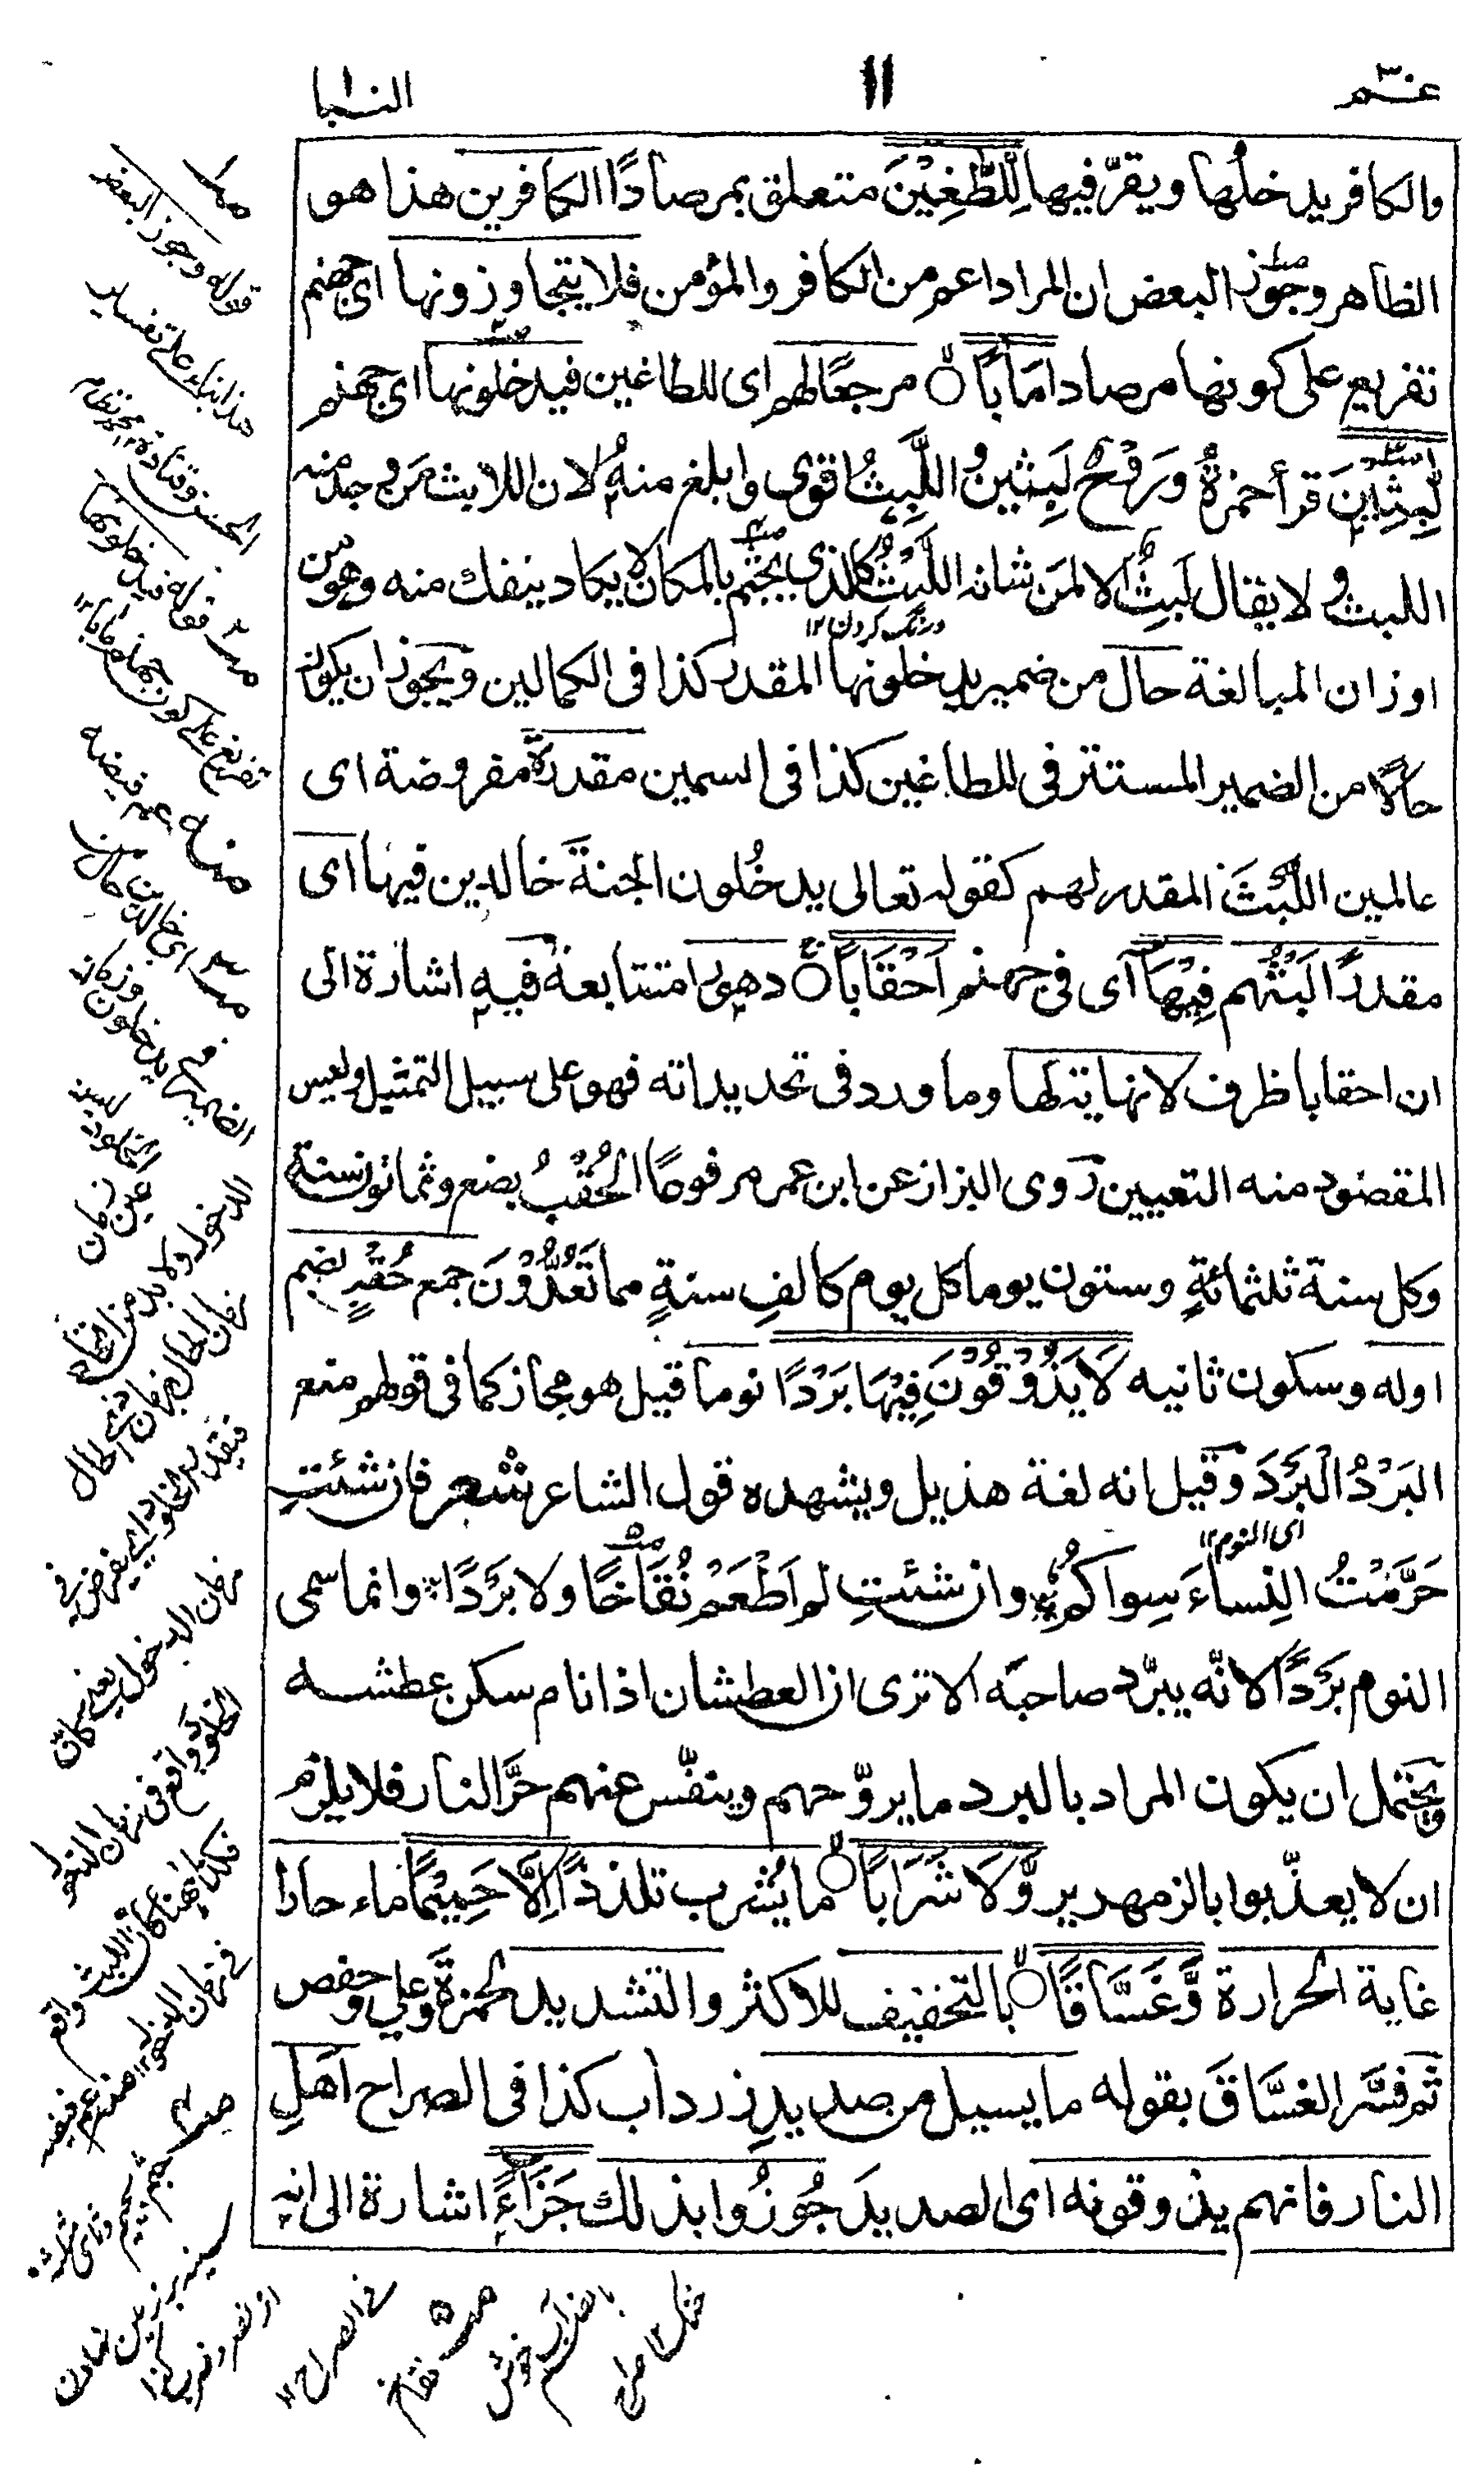 عـم
١١
النبا
والكافر يدخلُها ويقرّ فيها لِّلطّٰغِيْنَ متعلق بمرصادًا الكافرين هذا هو
الظاهر وجوز البعض ان المراد اعم من الكافر والمؤمن فلا يتجاوزونها اى جهنم
تفريع على كونها مرصادا مَاٰبًا مرجعًا لهم اى للطاغين فيدخلونها اى جهنم
لّٰبِثِيْنَ قرأ حمزةُ ورَوْحٌ لَبِثين واللَّبِثُ اقوى وابلغ منهُ لان اللابث مَن وجد منه
اللبثُ ولا يقال لَبِثٌ الا لمَن شانه اللَّبْثُ كالذى يجثم بالمكان لا يكاد ينفك منه وهو من
درنگ كردن ١٢
اوزان المبالغة حال من ضمير يدخلونها المقدر كذا فى الكمالين ويجوز ان يكون
حالًا من الضمير المستتر فى للطاغين كذا فى السمين مقدرةً مفروضة اى
عالمين اللَّبْثَ المقدر لهم كقوله تعالى يدخُلون الجنةَ خالدين فيها اى
مقدرًا لَبْثُهم فِيْهَآ اى فى جهنم اَحْقَابًا دهورا متتابعة فيه اشارة الى
ان احقابا ظرف لا نهاية لها وما ورد فى تحديداته فهو على سبيل التمثيل وليس
المقصود منه التعيين روى البزار عن ابن عمر مرفوعًا الحُقْبُ بضع وثمانون سنة
وكل سنة ثلثمائةٍ وستون يوما كل يوم كالفِ سنةٍ مما تَعُدُّوْنَ جمع حُقْبٍ بضم
اوله وسكون ثانيه لَا يَذُوْقُوْنَ فِيْهَا بَرْدًا نوما قيل هو مجاز كما فى قولهم منع
البَرْدُ الْبَرْدَ وقيل انه لغة هذيل ويشهده قول الشاعر شعر فان شئتِ
اى النوم ١٢
حَرَّمْتُ النِساءَ سِواكُمُ وان شئتِ لم اَطْعَمْ نُقَاخًا ولا بَرْدًا وانما سمى
النوم بَرْدًا لانّه يبرّد صاحبَه الا ترى ان العطشان اذا نام سكن عطشـه
ويحتمل ان يكون المراد بالبرد ما يروّحهم وينفّس عنهم حرَّ النار فلا يلزم
ان لا يعذّبوا بالزمهرير وَّلَا شَرَابًا ما يُشرب تلذذًا اِلَّا حَمِيْمًا ماء حارا
غاية الحرارة وَّغَسَّاقًا بالتخفيف للاكثر والتشديد لحمزةَ وعلي وحفص
ثم فسَّر الغسَّاقَ بقوله ما يسيل من صديدِ زرداب كذا فى الصراح اَهلِ
النار فانهم يذوقونه اى الصديدَ جُوزُوا بذلك جَزَآءً اشارة الى انه
قوله وجوز البعض
هذا بناء على تفسير
الحسن وقتادة
قوله فيدخلونها
تفريع على كون جهنم مآبا
منه عم فيضه
اى خالدين حال من
الضمير فى يدخلون
الخلود ليس
عين زمان
الدخول ولا بد من
زمان الحال زمان ذى الحال
زمان الدخول
الخلود واقع فى زمان الدخول
اللبث واقع
فى زمان الدخول ١٢ منه عم فيضه
سينه بر زمين نهادن
فى الصراح ١٢
نقاخ
بالضم آب خوش
خنك ١٢ صراح